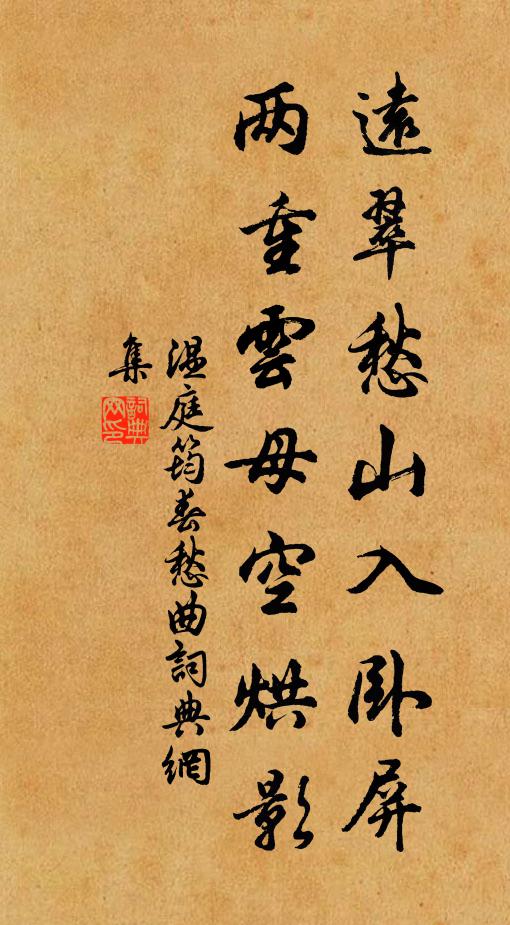 遠翠愁山入卧屏
两重雲母空烘影
溫庭筠春愁曲詞典網
集
詞典
网印